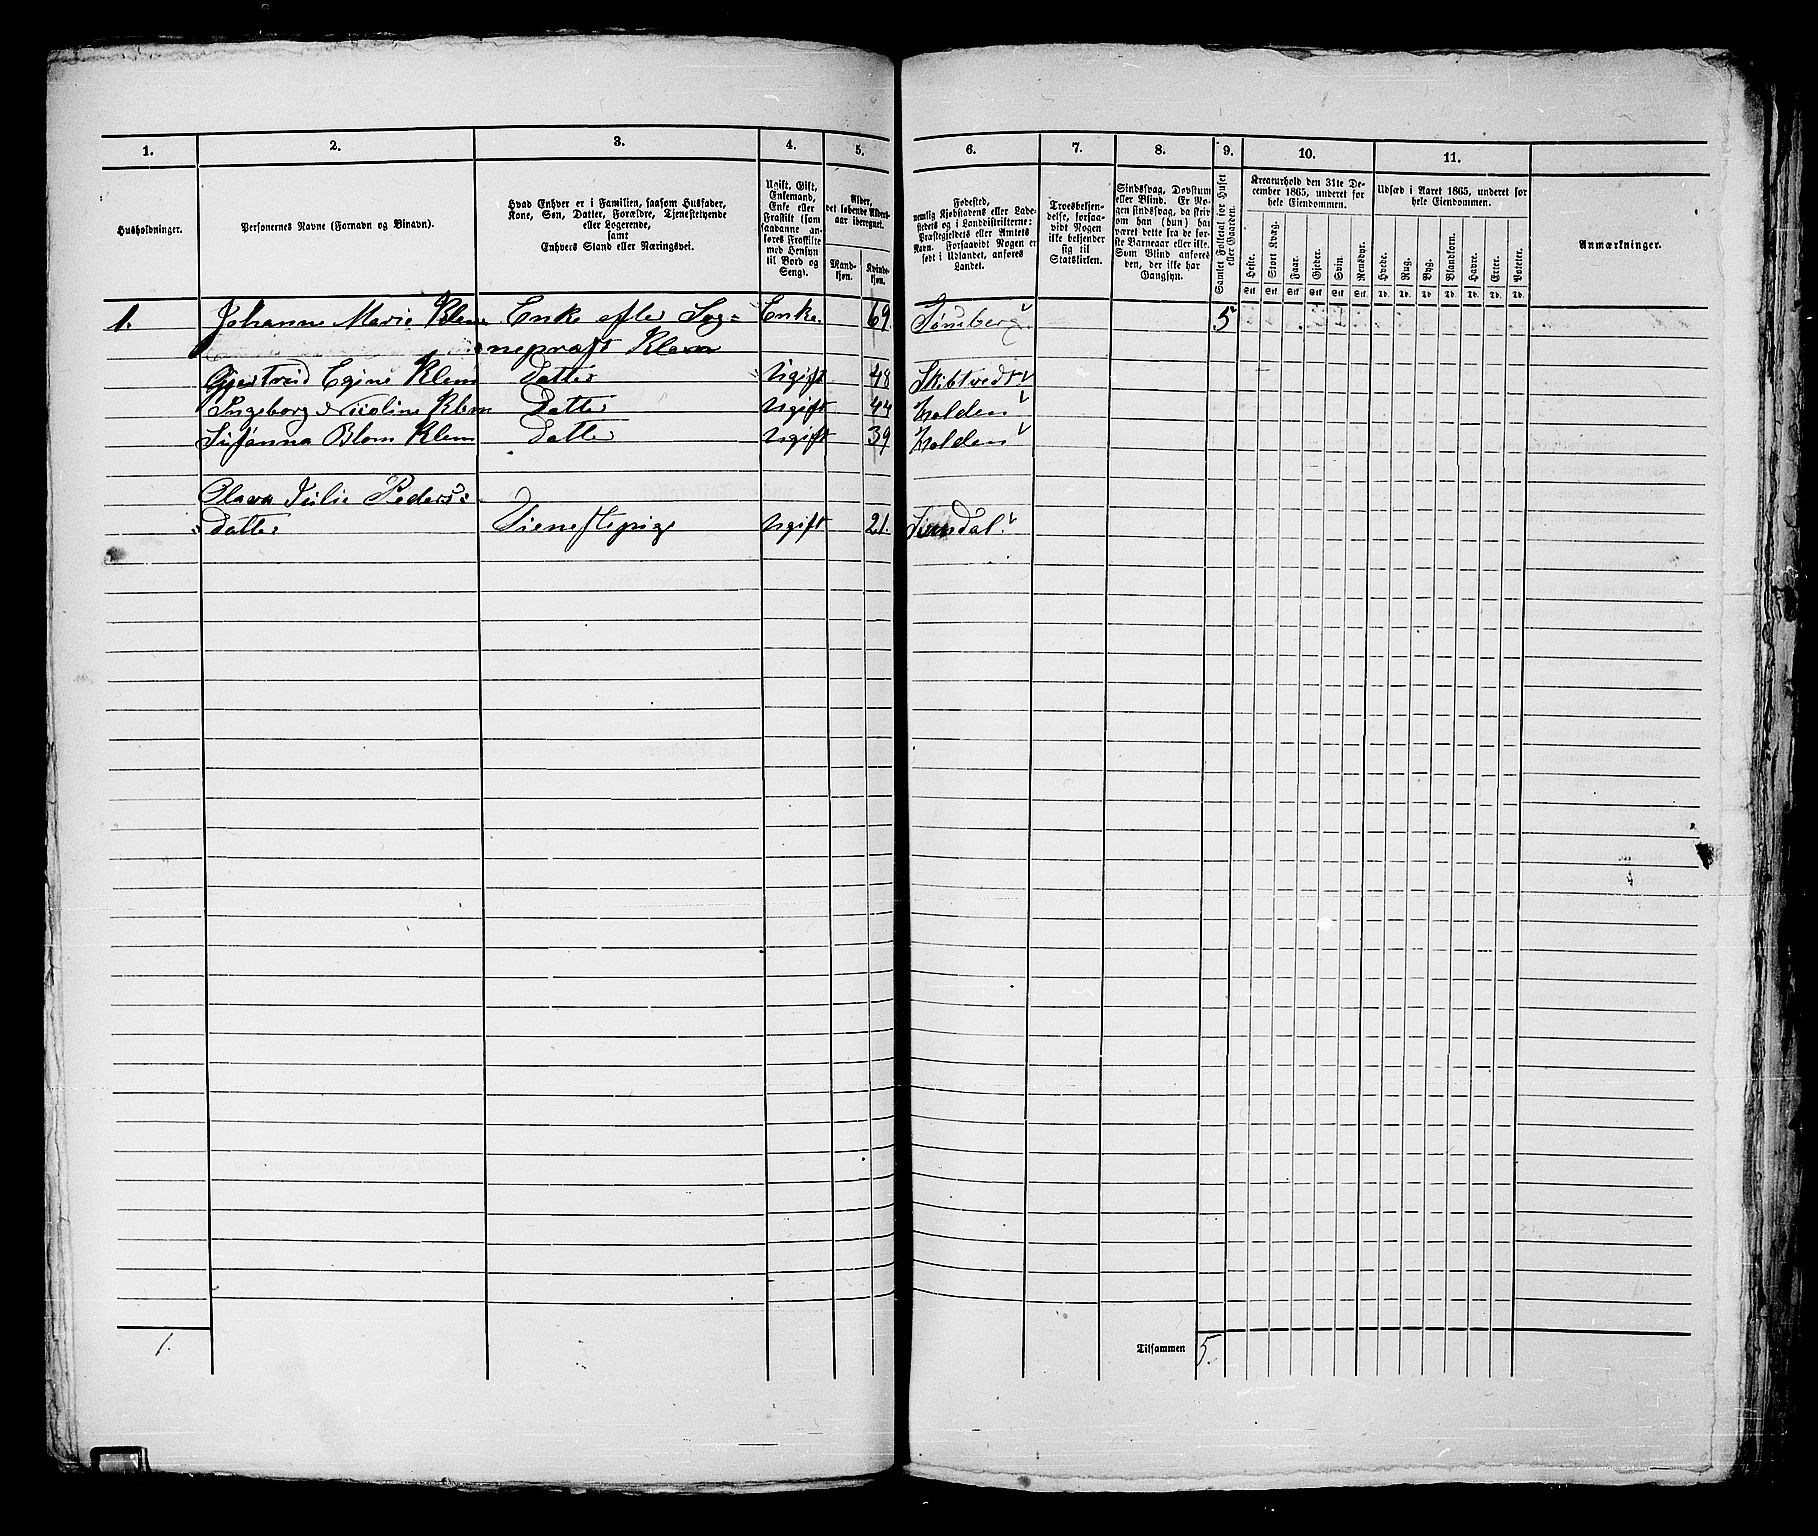 1. 2. 3. 4. 5. 6. 7. 8. 9. 10. 11.
Husholdninger.
Personernes Navne (Fornavn og Binavn).
Hvad Enhver er i Familien, saasom Husfader,
Kone, Søn, Datter, Forældre, Tjenestetyende
eller Logerende,
samt
Enhvers Stand eller Næringsvei.
Ugift, Gift,
Enkemand,
Enke eller
Fraskilt (som
saadanne an-
føres Fraskilte
med Hensyn
til Bord og
Seng).
Alder,
det løbende Alders-
aar iberegnet.
Mand-
kjøn.
Kvinde-
kjøn.
Fødested,
nemlig Kjøbstadens eller Lade-
stedets og i Landdistrikterne:
Præstegjeldets eller Amtets
Navn. Forsaavidt Nogen er
født i Udlandet, anføres
Landet.
Troesbekjen-
delse, forsaa-
vidt Nogen
ikke bekjender
sig til
Statskirken.
Sindssvag, Døvstum
eller Blind. Er No-
gen sindssvag, da skriv
om han (hun) har
været dette fra de før-
ste Barneaar eller ikke.
Som Blind anføres
den, der ikke har
Gangsyn.
Samlet Folketal for Huset
eller Gaarden.
Kreaturhold den 31te De-
cember 1865, underet for
hele Eiendommen.
Heste. Stort Kvæg. Faar. Gjeder. Svin. Rensdyr.
Stk Stk Stk Stk Stk Stk
Udsæd i Aaret 1865, underet for
hele Eiendommen.
Hvede. Rug. Byg. Blandkorn. Havre. Erter. Poteter.
Td. Td. Td. Td. Td. Td. Td.
Anmærkninger.
1. Johanne Marie Klem Enke efter Sog- Enke. 69 Tønsberg 5
nepræst Klem
Gjertrud Egine Klem Datter Ugift 48 Skibtvedt
Ingeborg Nicoline Klem Datter Ugift 44 Holden
Susanna Blom Klem Datter Ugift 39 Holden
Olava Julie Peders-
datter Tienestepige Ugift 21. Sundal.
1. Tilsammen 5.